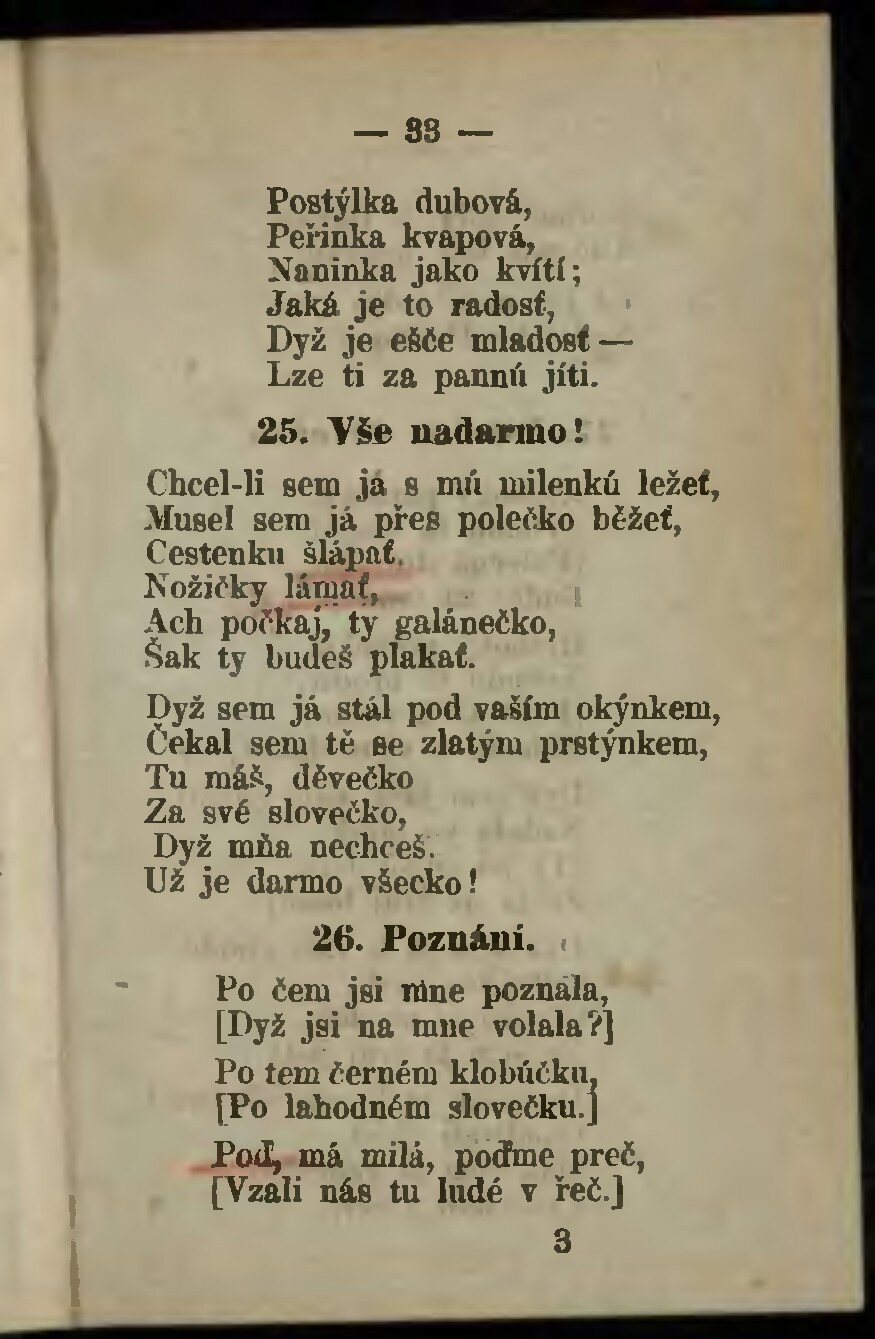 — 33 —
Postýlka dubová,
Peřinka kvapová,
Naninka jako kvítí;
Jaká je to radosť,
Dyž je ešče mladosť —
Lze ti za pannú jíti.
25. Vše nadarmo!
Chcel-li sem já s mú milenkú ležeť,
Musel sem já přes polečko běžeť,
Cestenku šlápať,
Nožičky lámať,
Ach počkaj, ty galánečko,
Šak ty budeš plakať.
Dyž sem já stál pod vaším okýnkem,
Čekal sem tě se zlatým prstýnkem,
Tu máš, děvečko
Za své slovečko,
Dyž mňa nechceš.
Už je darmo všecko!
26. Poznání.
Po čem jsi mne poznala,
[Dyž jsi na mne volala?]
Po tem černém klobúčku,
[Po lahodném slovečku.]
Poď, má milá, poďme preč,
[Vzali nás tu ludé v řeč.]
3